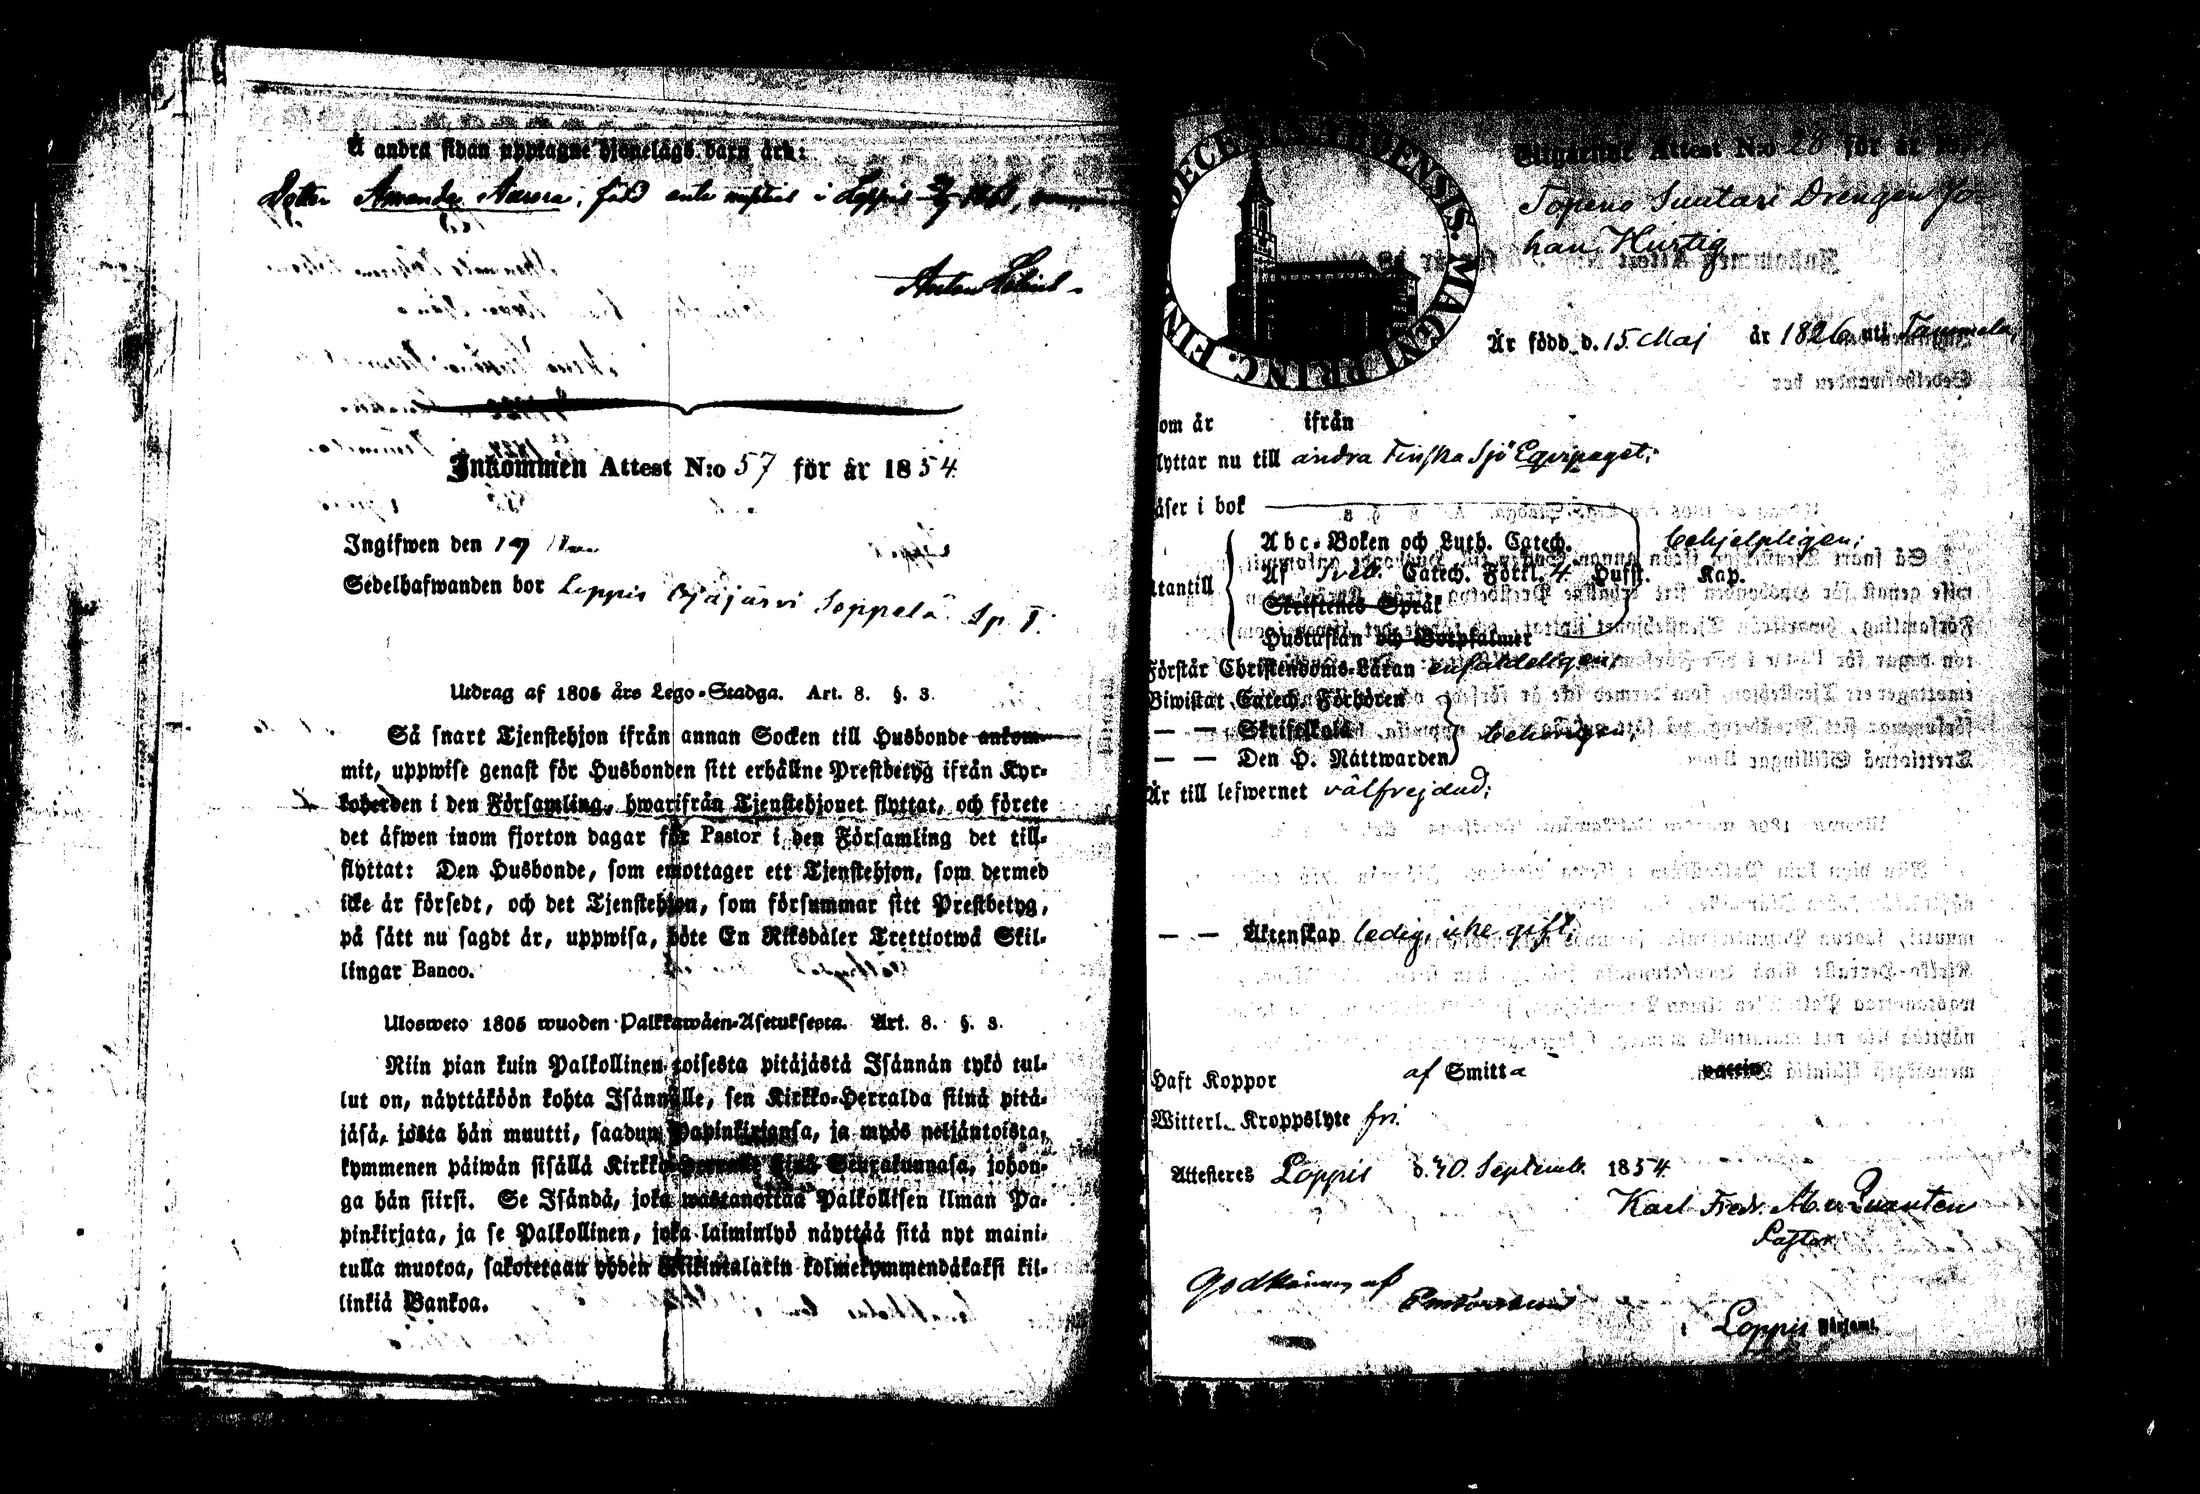 Å andra sidan upptagne hjonelags barn äro:
Dotter Amanda Aurora, född ante nuptias i Loppis
Anton
Inkommen Attest N:o 57 för år 1854
Ingifwen den 19
Sedelhafwanden bor Loppis Ojäjärvi Soppela Sp T.
Utdrag af 1805 års Lego-Stadga. Art. 8. §. 3.
Så snart Tjenstehjon ifrån annan Socken till Husbonde ankom-
mit, uppwise genast för Husbonden sitt erhållne Prestbetyg ifrån Kyr-
koherden i den Församling, hwarifrån Tjenstehjonet flyttat, och förete
det äfwen inom fjorton dagar för Pastor i den Församling det till-
flyttat: Den Husbonde, som emottager ett Tjenstehjon, som dermed
icke är försedt, och det Tjenstehjon, som försummar sitt Prestbetyg,
på sätt nu sagdt är, uppwisa, böte En Riksdaler Trettiotwå Skil-
lingar Banco.
Ulosweto 1805 wuoden Palkkawäen-Asetuksesta. Art. 8. §. 3.
Niin pian kuin Palkollinen toisesta pitäjästä Isännän tykö tul-
lut on, näyttäköön kohta Isännälle, sen Kirkko-Herralda siinä pitä-
jäsä, josta hän muutti, saadun Papinkirjansa, ja myös neljäntoista-
kymmenen päiwän sisällä Kirkko-Herralle siinä Seurakunnasa, johon-
ga hän siirsi. Se Isändä, joka wastanottaa Palkollisen ilman Pa-
pinkirjata, ja se Palkollinen, joka laiminlyö näyttää sitä nyt maini-
tulla muotoa, sakotetaan yhden Riikintalarin kolmekymmendäkaksi kil-
linkiä Bankoa.
Utgående Attest N:o 28 för år
Topeno Suntari Drengen Jo-
han Hurtig
Är född d. 15 Maj år 1826 uti Tammela,
om år ifrån
lyttar nu till andra Finska Sjö Eqvipaget;
äser i bok
Abc-Boken och Luth. Catech. behjelpligen;
tantill Af Sveb. Catech. Förkl. 4 Hufst. Kap.
Skriftenes Språk
Hustaflan och Botpsalmer
Förstår Christendoms-Läran enfaldeligen,
Biwistat Catech. Förhören
— — Skriftskola behörigen,
— — Den H. Nattwarden
Är till lefwernet välfrejdad;
— — Äktenskap ledig, icke gift;
Haft Koppor af Smitta
Witterl. Kroppslyte fri.
Attesteres Loppis d. 30 Septemb. 1854
Karl Fredr. Ab. v. Quanten
Pastor
Godkännes af
i Loppis Församl.
FIN MAGNI PRINC.